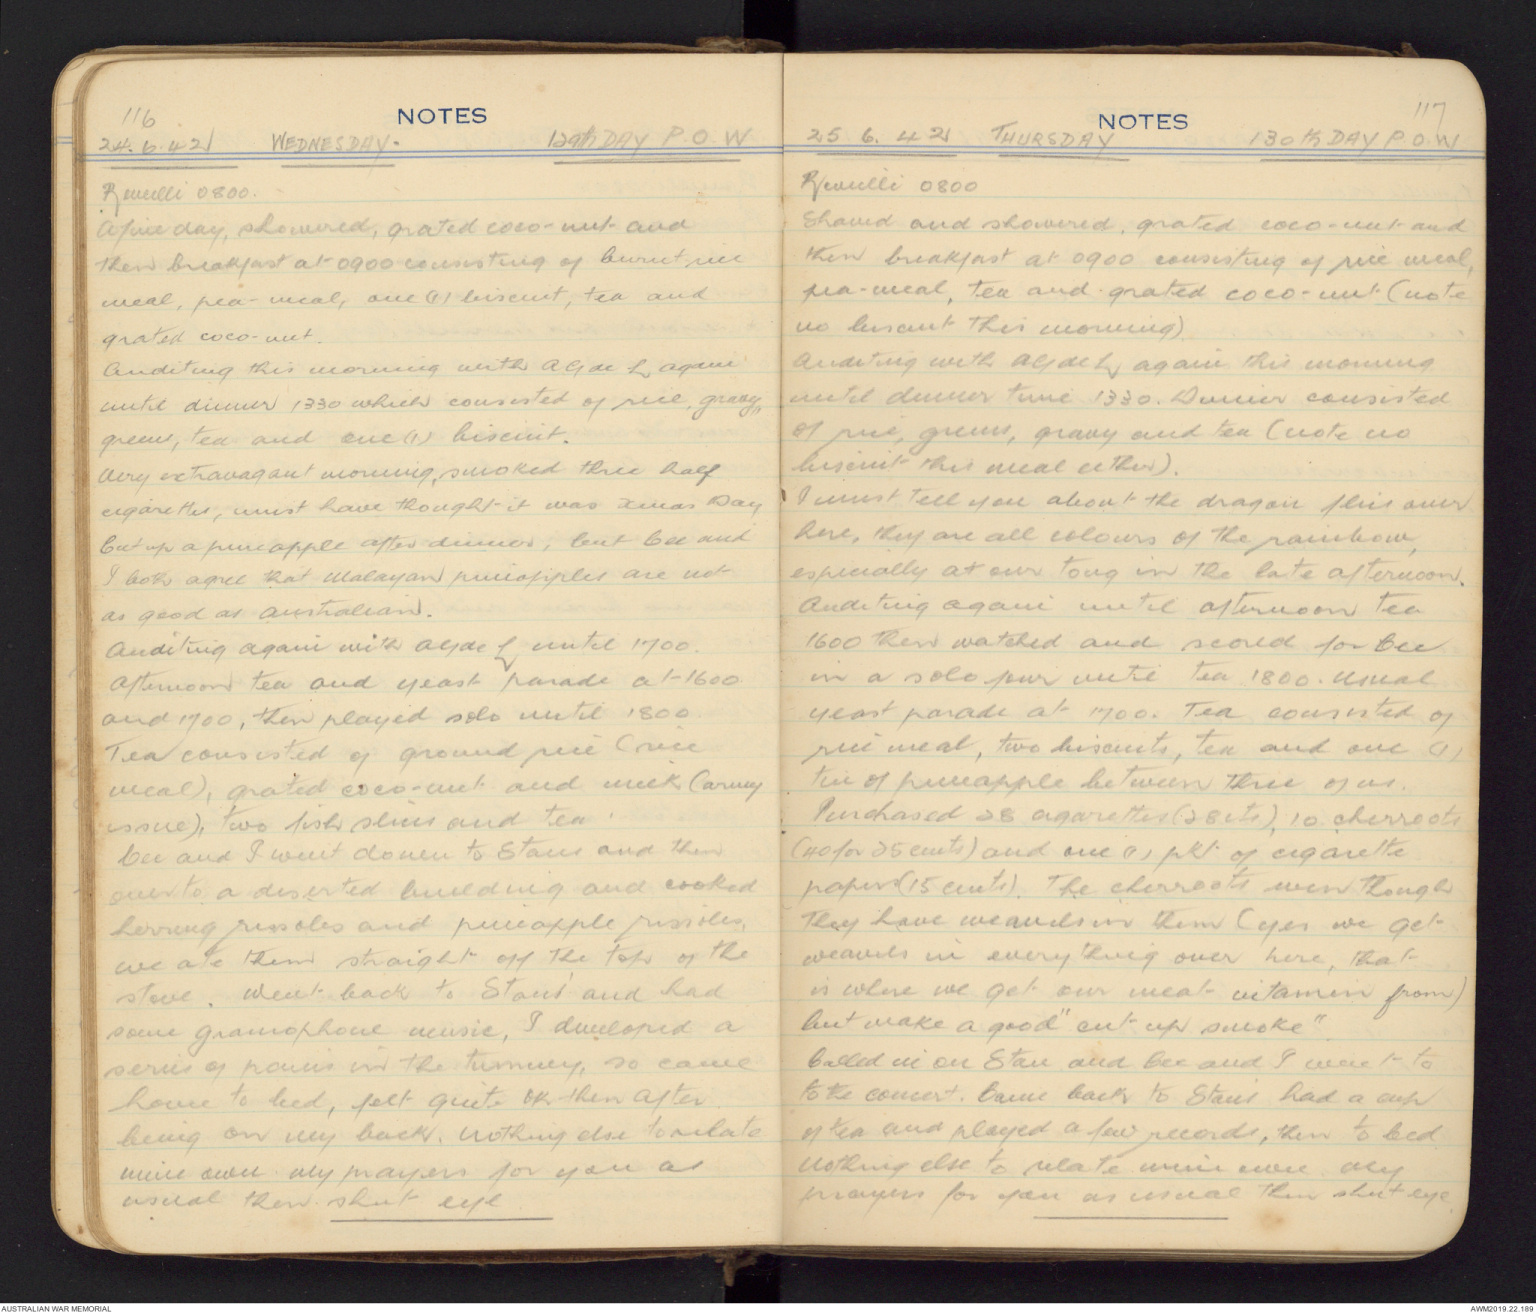 116
NOTES
24.6.42 WEDNESDAY. 129th DAY P.O.W
Revielli 0800.
A fine day, showered, grated coco-nut and
then breakfast at 0900 consisting of burnt rice
meal, pea-meal, one (1) biscuit, tea and
grated coco-nut.
Auditing this morning with Clyde L, again
until dinner 1330 which consisted of rice, gravy,
greens, tea and one (1) biscuit.
Very extravagant morning, smoked three half
cigarettes, must have thought it was Xmas Day
Cut up a pineapple after dinner, but Cec and
I both agree that Malayan pineapples are not
as good as Australian.
Auditing again with Clyde L until 1700.
Afternoon tea and yeast parade at 1600
and 1700, then played solo until 1800.
Tea consisted of ground rice (rice
meal), grated coco-nut and milk (army
issue), two fish slices and tea.
Cec and I went down to Stans and then
over to a deserted building and cooked
herring rissoles and pineapple rissoles,
we ate them straight off the top of the
stove. Went back to Stans' and had
some gramophone music, I developed a
series of pains in the tummy, so came
home to bed, felt quite OK then after
being on my back. Nothing else to relate
mine own my prayers for you as
usual then shut eye
117
NOTES
25.6.42 THURSDAY 130th DAY P.O.W
Revielli 0800
Shaved and showered, grated coco-nut and
then breakfast at 0900 consisting of rice meal,
pea-meal, tea and grated coco-nut (note
no biscuit this morning)
Auditing with Clyde L, again this morning
until dinner time 1330. Dinner consisted
of rice, greens, gravy and tea (note no
biscuit this meal either).
I must tell you about the dragon flies over
here, they are all colours of the rainbow,
especially at our tong in the late afternoon.
Auditing again until afternoon tea
1600 then watched and scored for Cec
in a solo four until tea 1800. Usual
yeast parade at 1700. Tea consisted of
rice meal, two biscuits, tea and one (1)
tin of pineapple between three of us.
Purchased 28 cigarettes (28cts), 10 cherroots
(40 for 25 cents) and one (1) pkt of cigarette
papers (15 cents). The cherroots even though
they have weavels in them (yes we get
weavels in everything over here, that
is where we get our meat vitamin from)
but make a good "cut up smoke"
Called in on Stan and Cec and I went to
to the concert. Came back to Stans had a cup
of tea and played a few records, then to bed
Nothing else to relate mine own. My
prayers for you as usual then shut eye
AUSTRALIAN WAR MEMORIAL
AWM2019.22.189